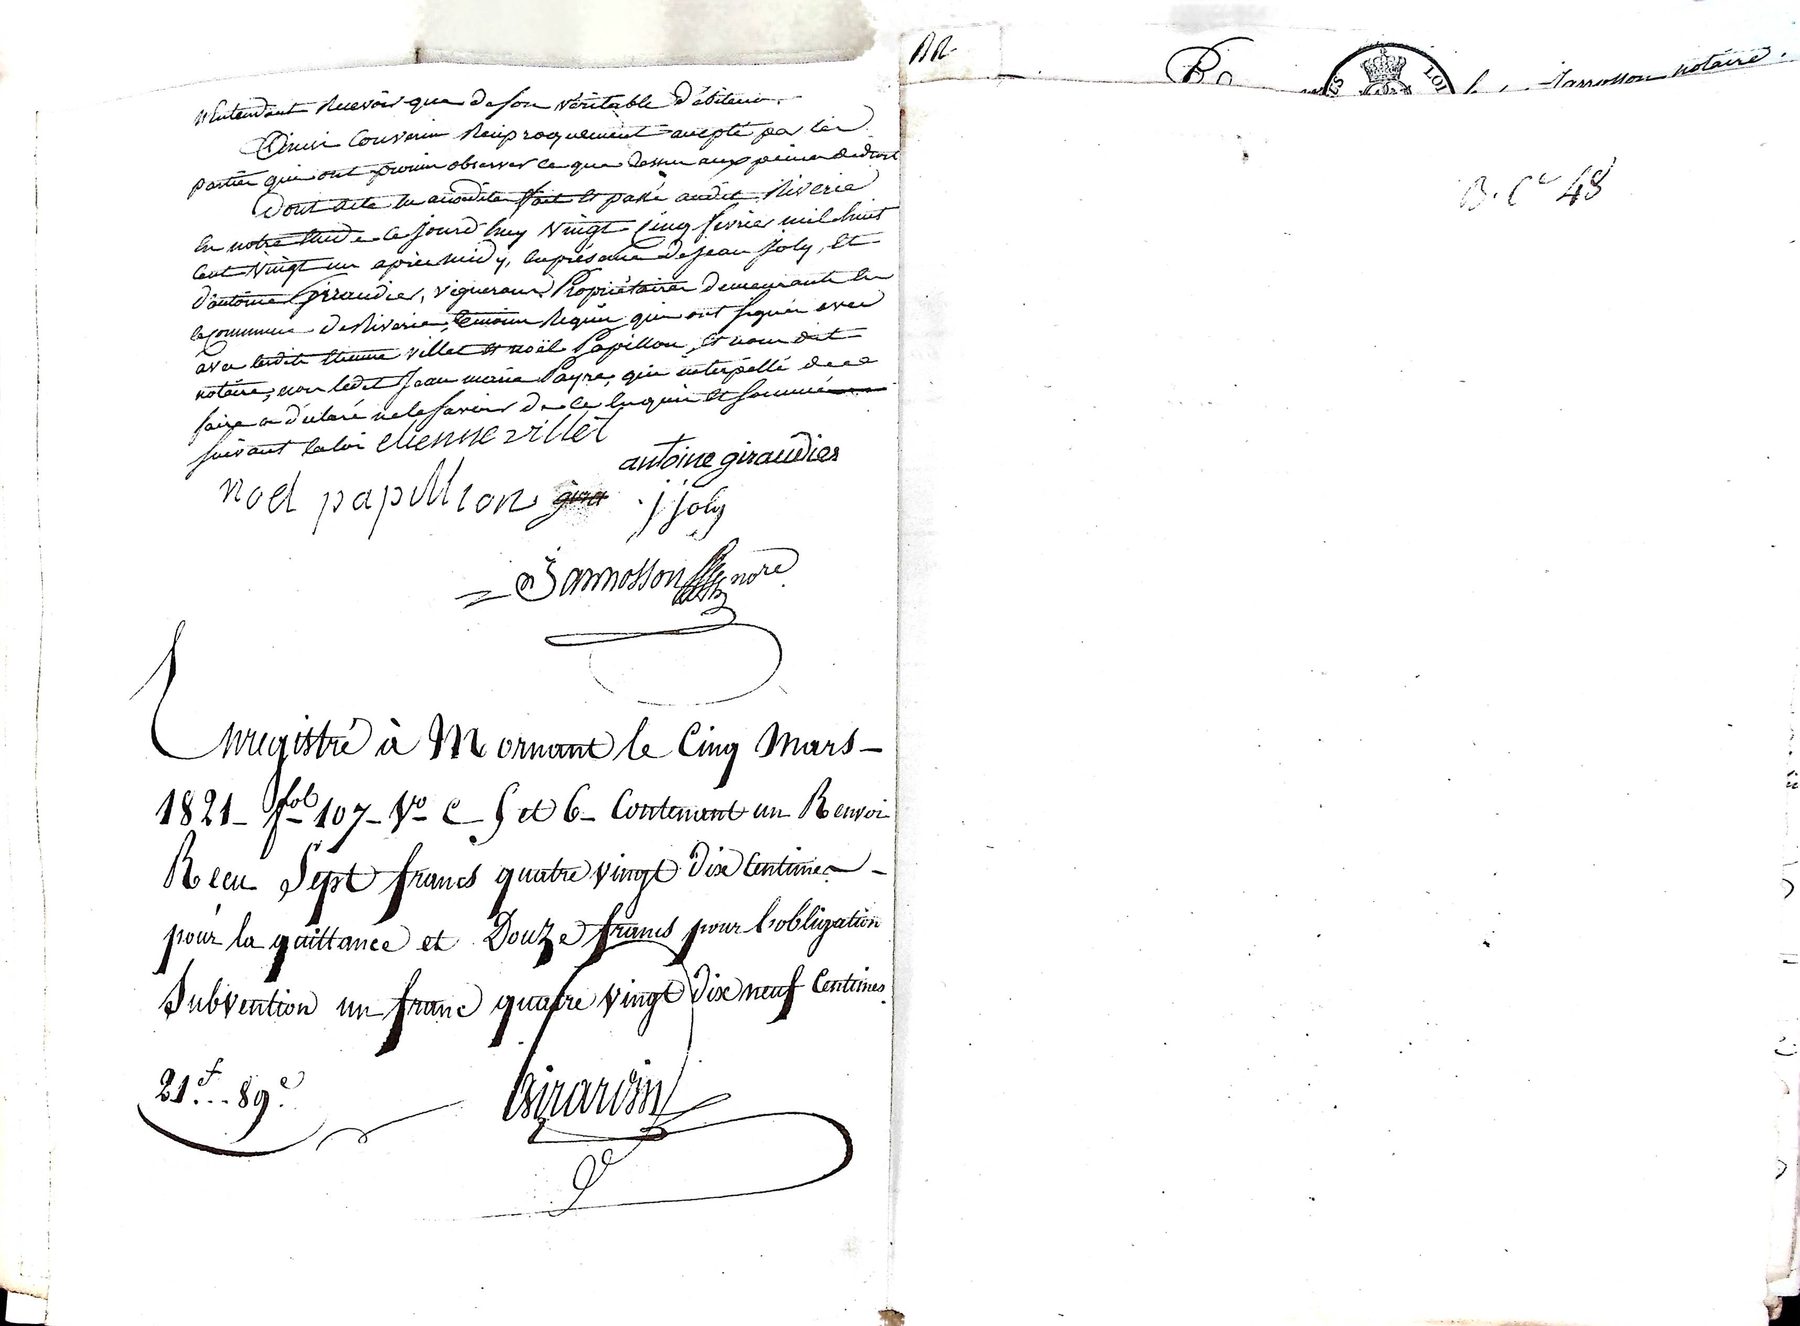 n'Entendant Recevoir que de son véritable débiteur.
Ainsi Convenu Reciproquement accepté par les
parties qui ont promis observer ce que dessus aux peines de droit
Dont acte lu auxdites fait et passé audit Riverie
En notre Etude ce jourd'huy vingt Cinq fevrier mil huit
Cent vingt un après midy, En présence de Jean Joly, Et
d'antoine Giraudier, vignerons Propriétaires demeurants En
la Commune de Riverie, temoins Requis qui ont signés avec
avec lesdits Etienne villet et noël Papillon, Et nous dit
notaire, non ledit Jean marie Payre, qui interpellé de ce
faire a déclaré ne le savoir de ce Enquis Et sommé
suivant la loi etienne villet
antoine giraudier
noel papillion gira j joly
Jannosson nore
Enregistré à Mornant le Cinq Mars
1821 - fol 107 - Vo C 5 et 6 - Contenant un Renvoi
Recu Sept francs quatre vingt Dix Centimes -
pour la quittance et Douze francs pour l'obligation
Subvention un franc quatre vingt dix neuf Centimes.
21f... 89c.
Girardin
AR
Jannosson notaire.
LOI
B. Ce 48